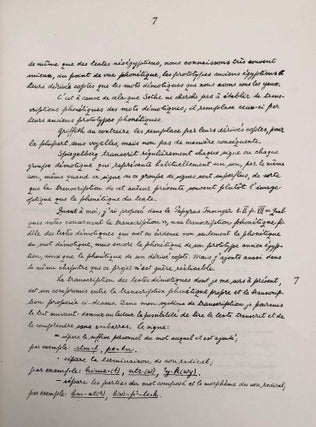 7
de même que des textes néoégyptiens, nous connaissons très souvent
mieux, du point de vue phonétique, les prototypes anciens égyptiens et
leurs dérivés coptes que les mots démotiques que nous avons sous les yeux.
C'est à cause de cela que Sethe ne cherche pas à établir de trans-
criptions phonétiques des mots démotiques, il remplace ceux-ci par
leurs anciens prototypes phonétiques.
Griffith au contraire les remplace par leurs dérivés coptes, pour
la plupart sans voyelles, mais non pas de manière conséquente.
Spiegelberg transcrit régulièrement chaque signe ou chaque
groupe démotique qui représente habituellement un son, par le même
son, même quand ce signe ou ce groupe de signes sont superflus, de sorte
que la transcription de cet auteur présente souvent plutôt l'image
optique que la phonétique du texte.
Quant à moi, j'ai proposé dans le Papyrus Insinger t. II p. VII en quel-
ques mots concernant la transcription, une transcription phonétique fi-
dèle des textes démotiques qui met en évidence non seulement la phonétique
du mot démotique, mais encore la phonétique de son prototype ancien égyp-
tien, ainsi que la phonétique de son dérivé copte. Mais j'ajoute aussi dans
le même chapitre que ce projet n'est guère réalisable.
La transcription des textes démotiques dont je me sers à présent,
est un compromis entre la transcription phonétique propre et la transcrip-
tion proposée ci-dessus. Dans mon système de transcription je poursuis
le but suivant: donner au lecteur la possibilité de lire le texte transcrit et de
le comprendre sans embarras. Le signe:
- sépare le suffixe personnel du mot auquel il est ajouté,
par exemple:
- sépare la terminaison de son radical,
par exemple:
- sépare les parties du mot composé et le morphème du son radical,
par exemple:
7